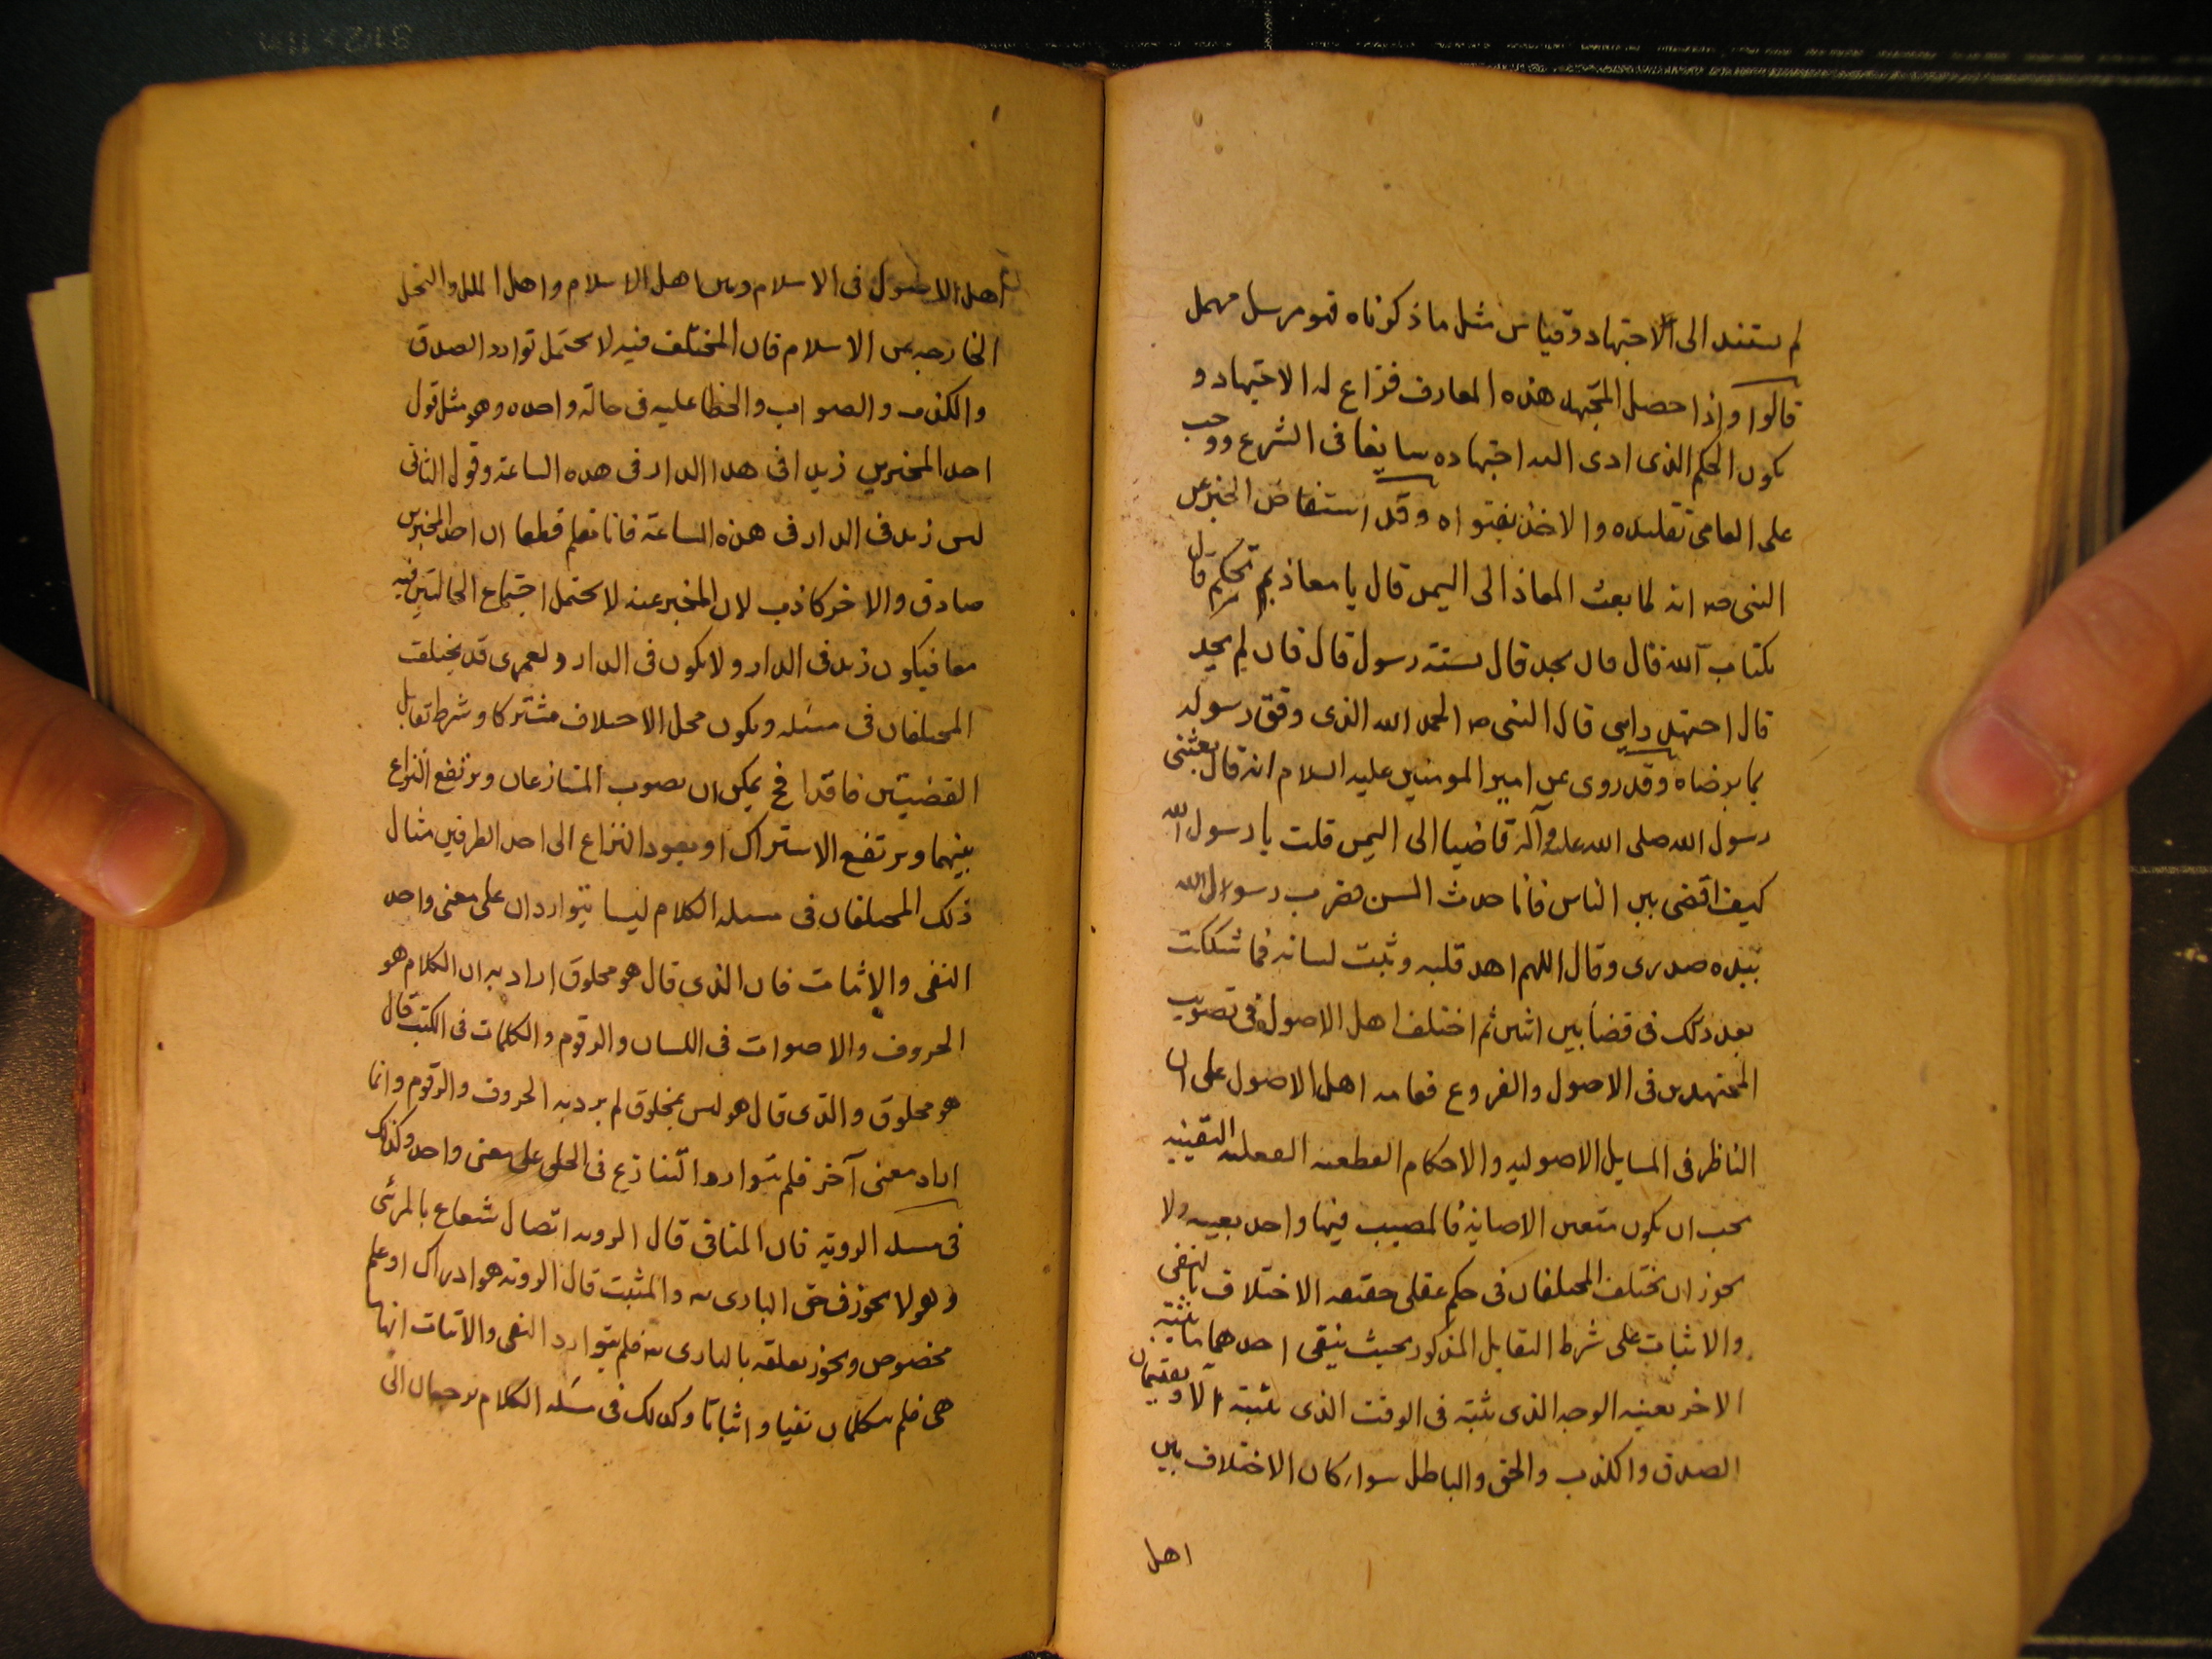 لم يستند الى الاجتهاد وقياس مثل ما ذكرناه فهو مرسل مهمل
قالوا واذا حصل المجتهد هذه المعارف فزاع له الاجتهاد و
يكون الحكم الذى ادى اليه اجتهاده سايغا فى الشرع ووجب
على العامى تقليده والاخذ بفتواه وقد استفاض الخبر عن
النبى صـ انه لما بعث المعاذ الى اليمن قال يا معاذ بم تحكم قال
بكتاب الله قال فان لم يجد قال بسنة رسول قال فان لم يجد
قال اجتهد رايى قال النبى صـ الحمد الله الذى وفق رسوله
بما يرضاه وقد روى عن امير المومنين عليه السلام انه قال بعثنى
رسول الله صلى الله عليه وآله قاضيا الى اليمن قلت يا رسول الله
كيف اقضى بين الناس فانا حدث السن فضرب رسول الله
بيده صدرى وقال اللهم اهد قلبه وثبت لسانه فما شككت
بعد ذلك فى قضا بين اثنين ثم اختلف اهل الاصول فى تصويب
المجتهدين فى الاصول والفروع فعامه اهل الاصول على ان
الناظر فى المسايل الاصوليه والاحكام القطعيه العقليه اليقينيه
يجب ان يكون متعين الاصابة فالمصيب فيها واحد بعينه ولا
يجوز ان يختلف المختلفان فى حكم عقلى حقيقه الاختلاف بالنفى
والاثبات على شرط التقابل المذكور بحيث ينفى احدهما ما يثبته
الاخر بعينه الوجه الذى يثبته فى الوقت الذى يثبته الا ويقتسمان
الصدق والكذب والحق والباطل سواء كان الاختلاف بين
اهل
اهل الاصول فى الاسلام وبين اهل الاسلام واهل الملل والنحل
الخارجه عن الاسلام فان المختلف فيه لا يحتمل توارد الصدق
والكذب والصواب والخطا عليه فى حالة واحده وهو مثل قول
احد المخبرين زيد فى هذا الدار فى هذه الساعة وقول الثانى
ليس زيد فى الدار فى هذه الساعة فانا نعلم قطعا ان احد المخبرين
صادق والاخر كاذب لان المخبر عنه لا يحتمل اجتماع الحالتين فيه
معا فيكون زيد فى الدار ولا يكون فى الدار ولعمرى قد يختلف
المختلفان فى مسئله ويكون محل الاختلاف مشتركا وشرط تقابل
القضيتين فاقدا فح يمكن ان يصوب المتنازعان ويرتفع النزاع
بينهما ويرتفع الاشتراك او يعود النزاع الى احد الطرفين مثال
ذلك المختلفان فى مسله الكلام ليسا يتواردان على معنى واحد
النفى والاثبات فان الذى قال هو مخلوق اراد به ان الكلام هو
الحروف والاصوات فى اللسان والرقوم والكلمات فى الكتب قال
هو مخلوق والذى قال هو ليس بمخلوق لم يرد به الحروف والرقوم وانما
اراد معنى آخر فلم يتواردا لتنازع فى الخلق على معنى واحد وكذلك
فى مسله الروية فان النافى قال الرويه اتصال شعاع بالمرئى
وهو لا يجوز فى حق البارى تع والمثبت قال الرويه هو ادراك او علم
مخصوص ويجوز تعلقه بالبارى تع فلم يتوارد النفى والاثبات انها
هى فلم يتكلمان نفيا واثباتا وكذلك فى مسئله الكلام يرجعان الى